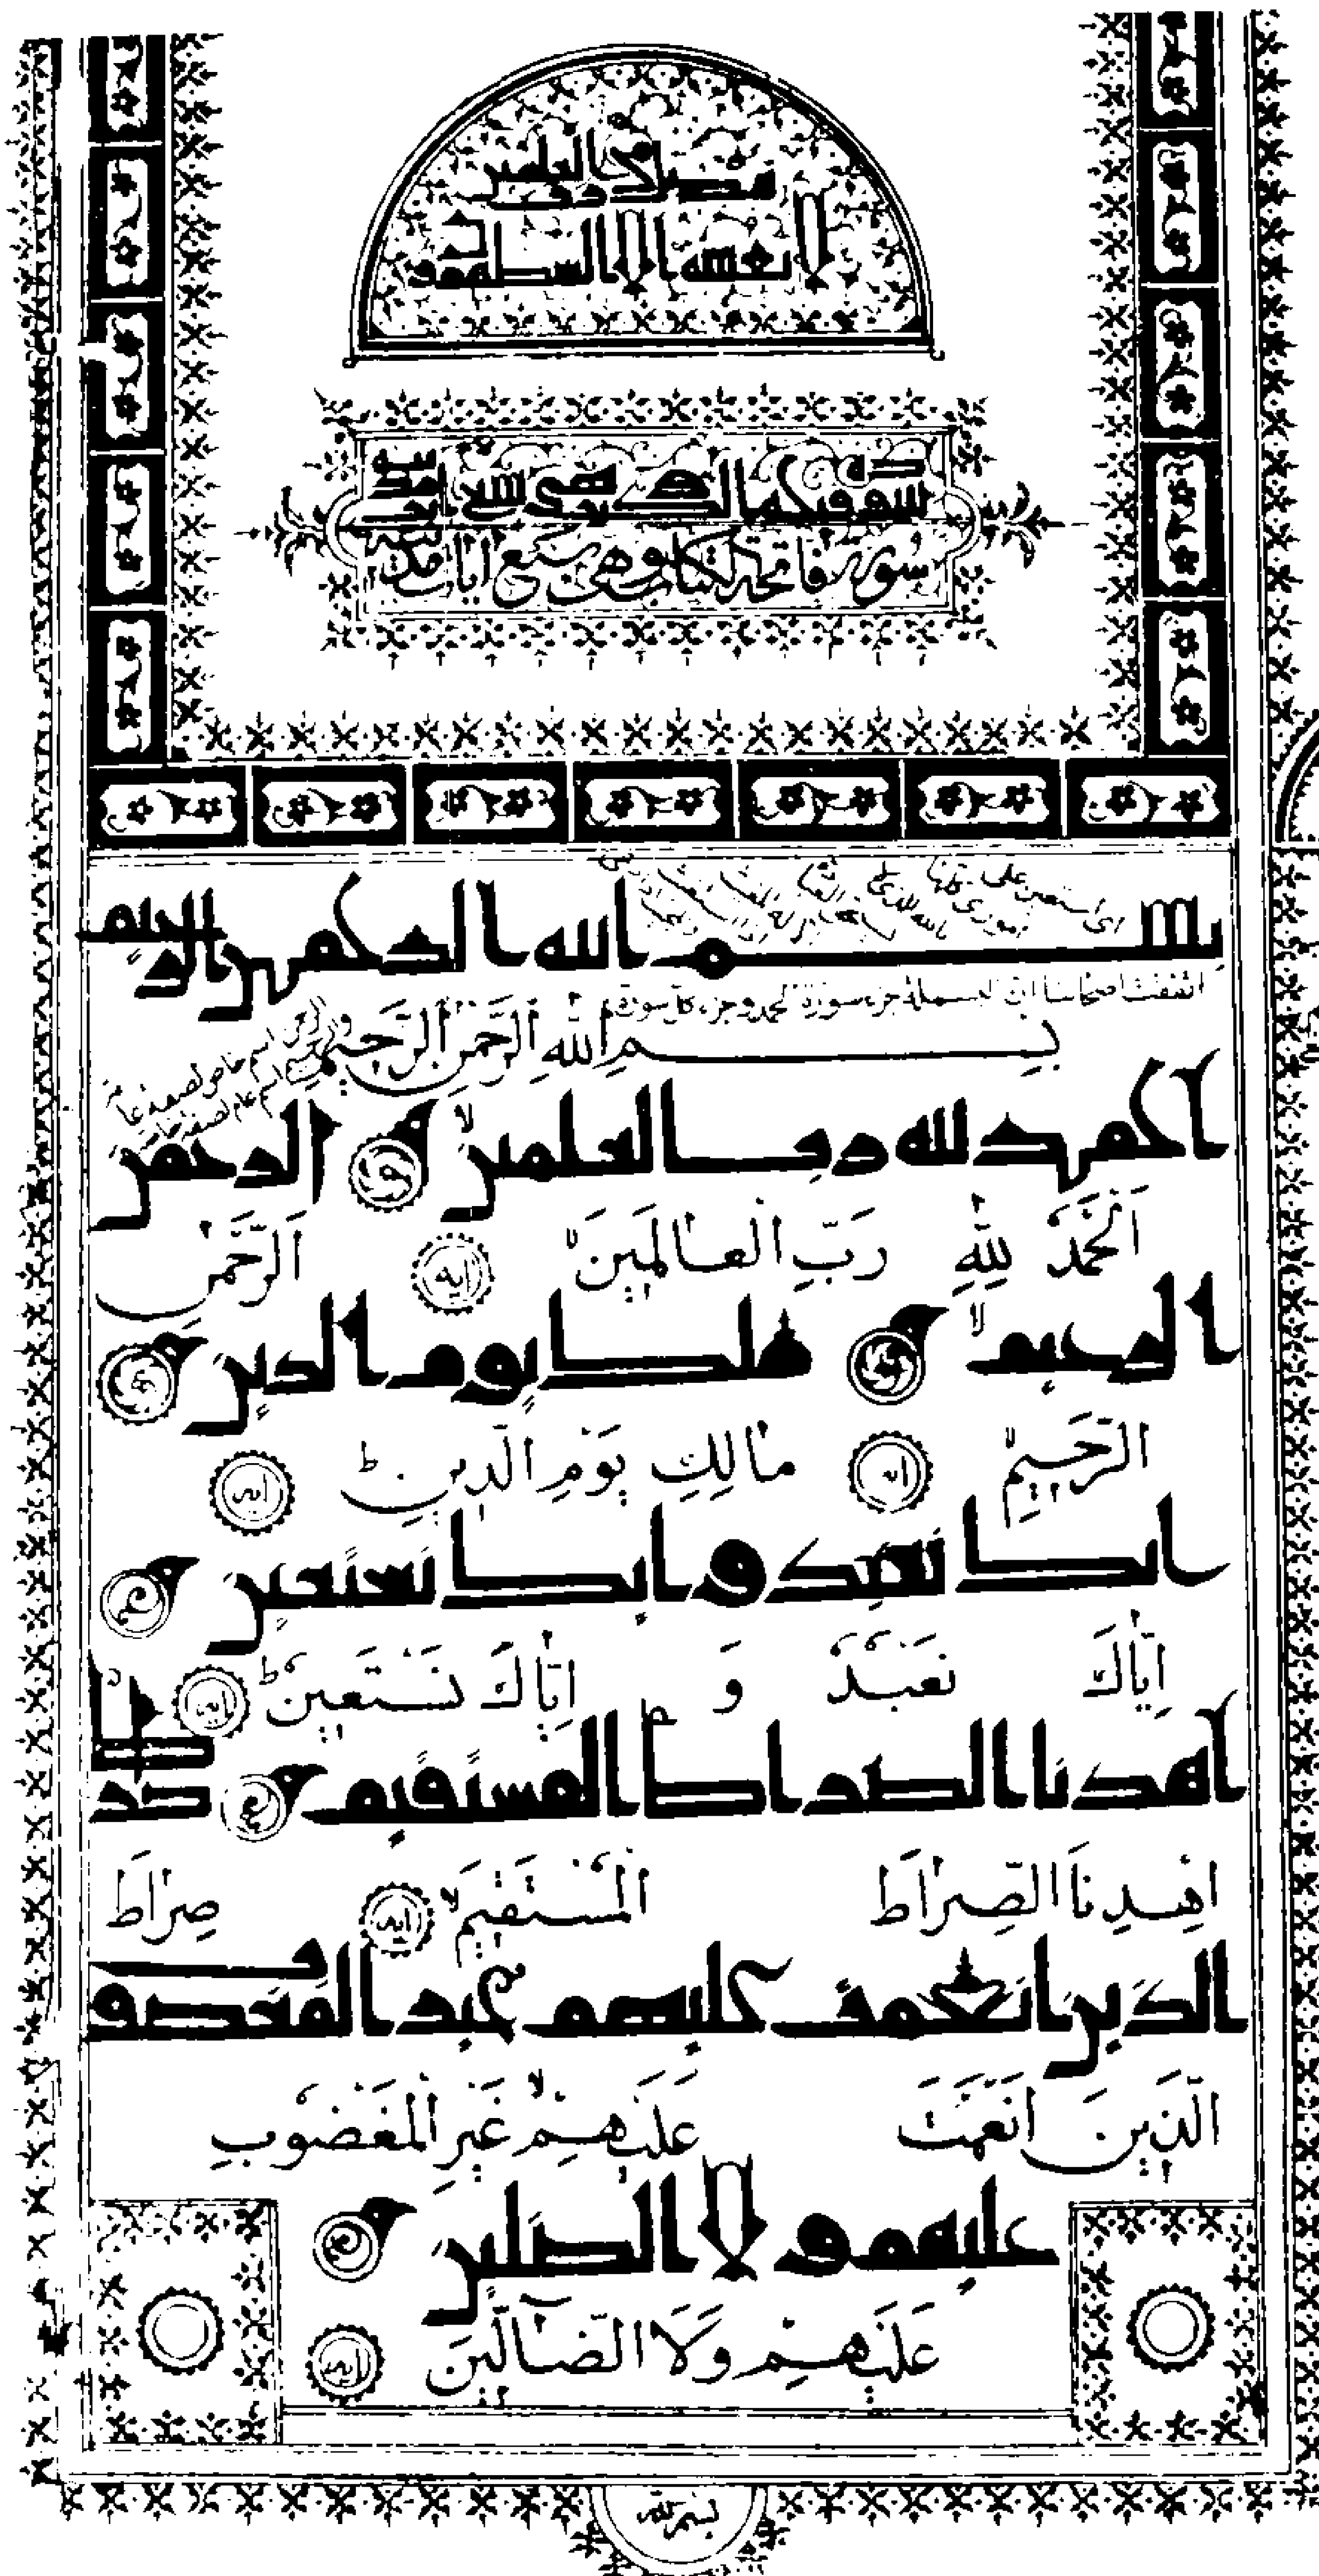 لا يمسه الا المطهرون
سورة فاتحة الكتاب وهي سبع ايات
بسم الله الرحمن الرحيم
اتفقت اصحابنا ان البسملة جزء سورة الحمد وجزء كل سورة
بِسْمِ اللهِ الرَّحْمٰنِ الرَّحِيمِ
الحمد لله رب العلمين الرحمن
اَلْحَمْدُ لِلّٰهِ رَبِّ الْعَالَمِينَ ايه اَلرَّحْمٰنِ
الرحيم ملك يوم الدين
الرَّحِيمِ ايه مَالِكِ يَوْمِ الدِّينِ ايه
اياك نعبد و اياك نستعين
اِيَّاكَ نَعْبُدُ وَ اِيَّاكَ نَسْتَعِينُ ايه
اهدنا الصراط المستقيم صراط
اهْدِنَا الصِّرَاطَ الْمُسْتَقِيمَ ايه صِرَاطَ
الذين انعمت عليهم غير المغضوب
الَّذِينَ اَنْعَمْتَ عَلَيْهِمْ غَيْرِ الْمَغْضُوبِ
عليهم ولا الضلين
عَلَيْهِمْ وَلَا الضَّالِّينَ ايه